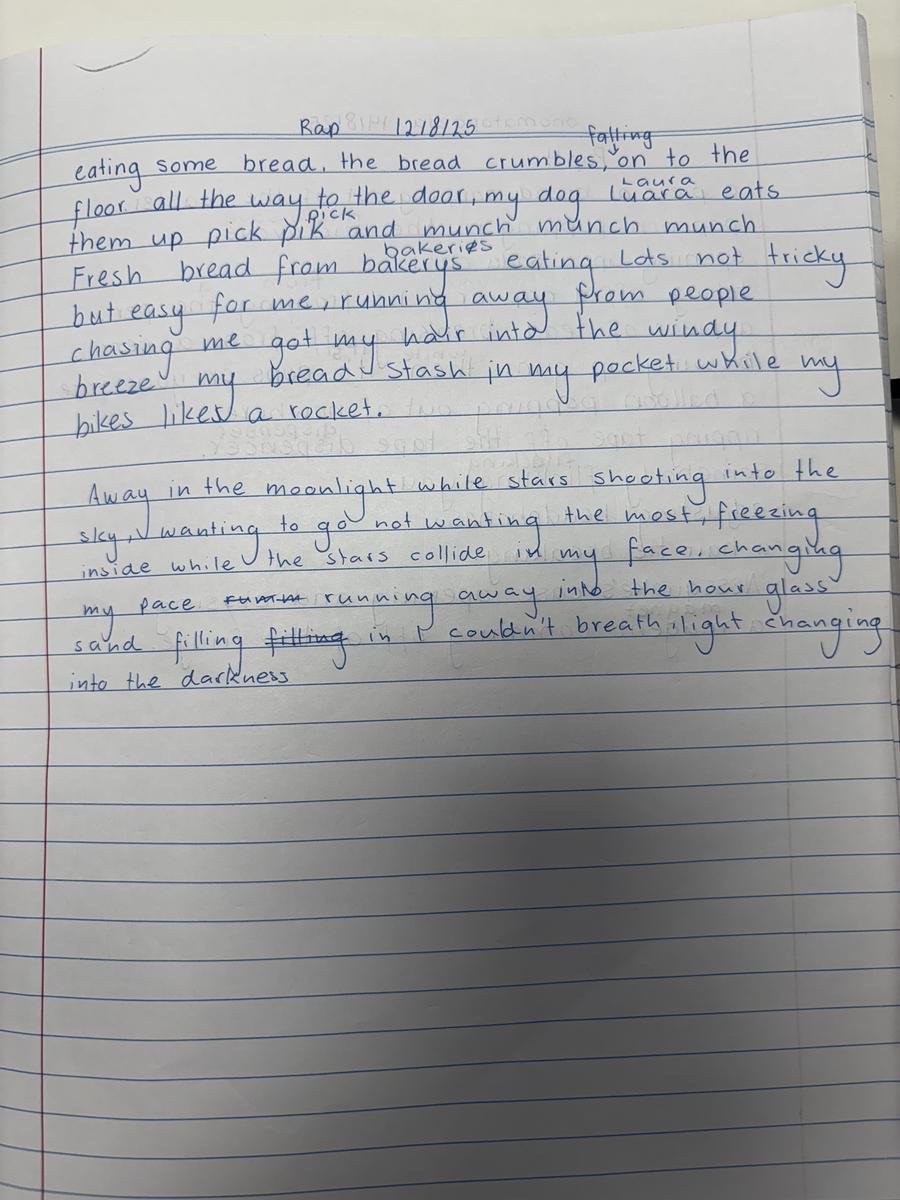 Rap 12/8/25
falling
eating some bread, the bread crumbles, on to the
Laura
floor all the way to the door, my dog Luara eats
pick
them up pick pik and munch munch munch
bakeries
Fresh bread from bakerys eating Lots not tricky
but easy for me, running away from people
chasing me got my hair into the windy
breeze my bread stash in my pocket while my
bikes likes a rocket.
Away in the moonlight while stars shooting into the
sky, I wanting to go not wanting the most, freezing
inside while the stars collide in my face. changing
my pace running away into the hour glass
sand filling filling in I couldn't breath, light changing
into the darkness